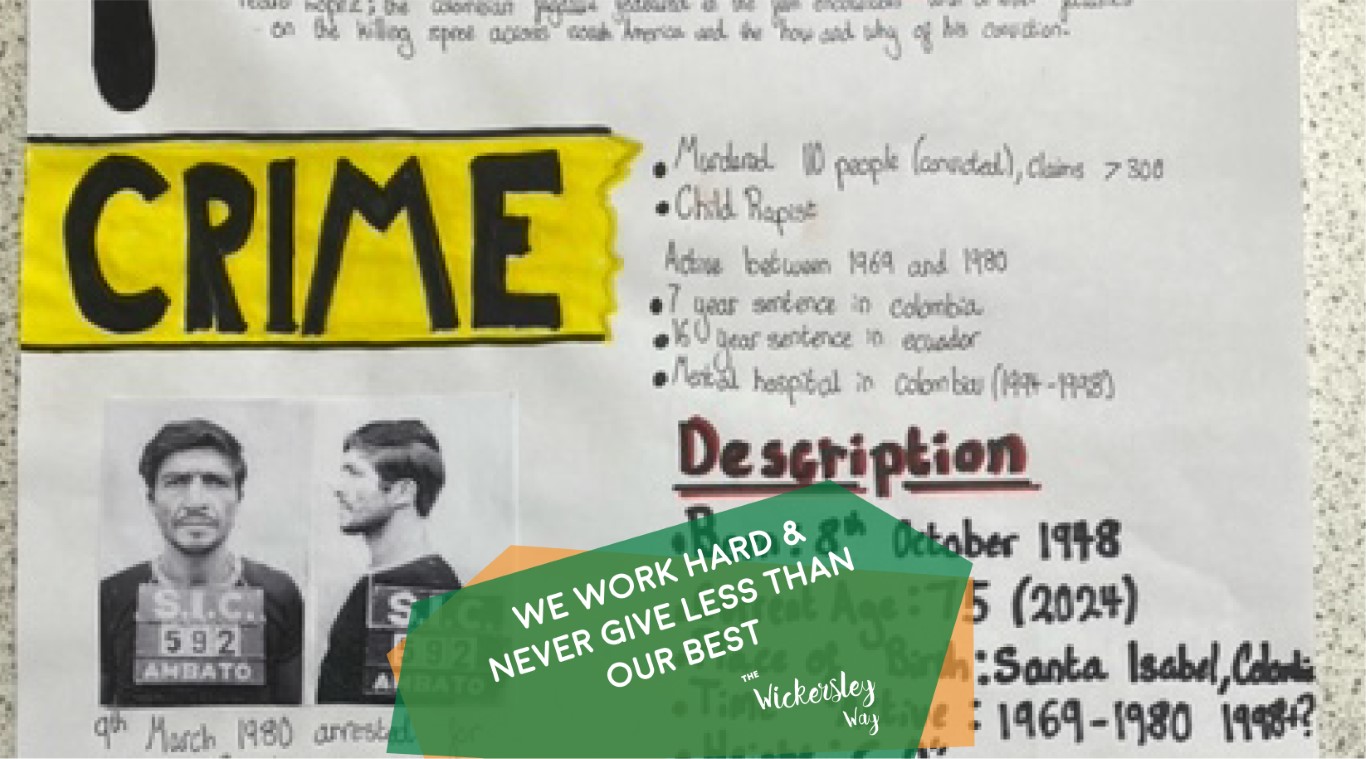 on the killing spree across south America and the "how and why of his conviction.
CRIME
• Murdered 110 people (convicted), claims > 300
• Child Rapist
Active between 1969 and 1980
• 7 year sentence in colombia
• 160 year sentence in ecuador
• Mental hospital in colombia (1994-1998)
Description
Born: 8th October 1948
Current Age: 75 (2024)
Place of Birth: Santa Isabel, Colombia
• Time Active: 1969-1980 1998+?
S.I.C.
592
AMBATO
S.I.C.
592
AMBATO
9th March 1980 arrested for
WE WORK HARD &
NEVER GIVE LESS THAN
OUR BEST
THE
Wickersley
Way